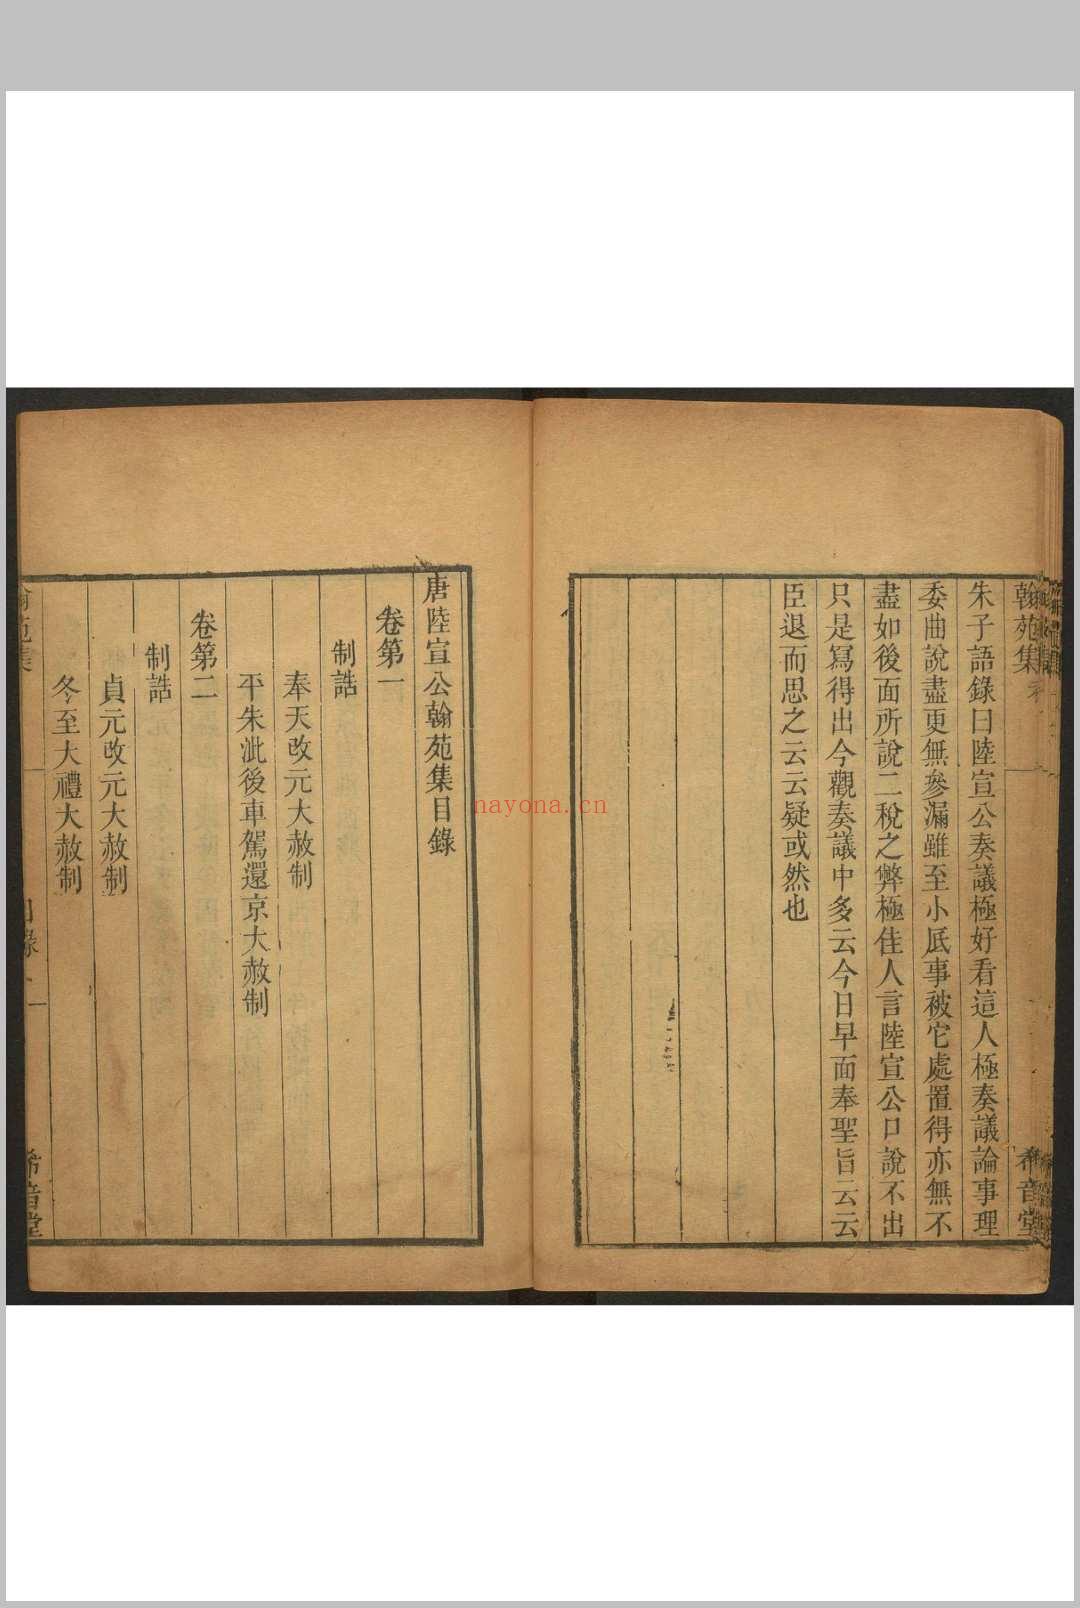 翰苑集
希音堂
朱子語錄曰陸宣公奏議極好看這人極奏議論事理
委曲說盡更無參漏雖至小底事被它處置得亦無不
盡如後面所說二稅之弊極佳人言陸宣公口說不出
只是寫得出今觀奏議中多云今日早面奉聖旨云云
臣退而思之云云疑或然也
唐陸宣公翰苑集目錄
卷第一
制誥
奉天改元大赦制
平朱泚後車駕還京大赦制
卷第二
制誥
貞元改元大赦制
冬至大禮大赦制
翰苑集
目錄
一
希音堂
nayona.cn